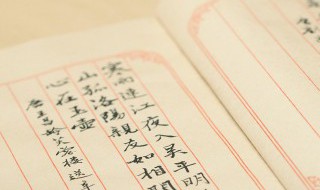 寒雨連江夜入吴平明
山孤洛陽親友如相問
心在玉壺
唐王昌龄芙蓉楼送辛